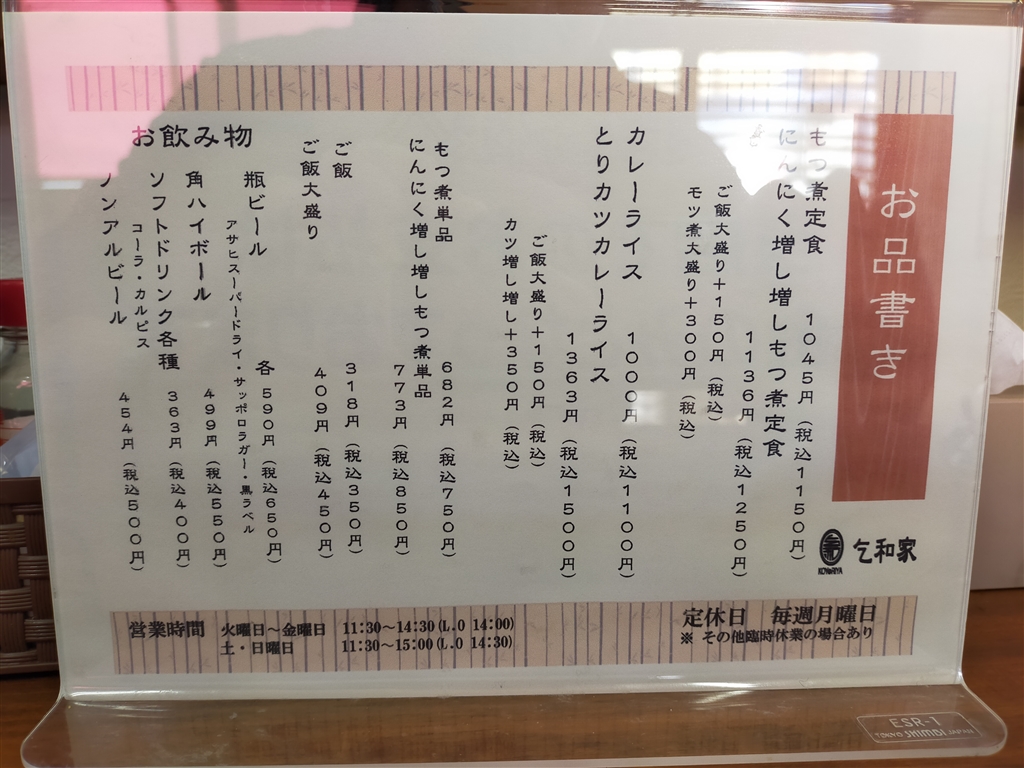 お品書き
乞和家
KOWAIYA
もつ煮定食 1045円(税込1150円)
にんにく増し増しもつ煮定食
1136円(税込1250円)
ご飯大盛り+150円(税込)
モツ煮大盛り+300円(税込)
カレーライス 1000円(税込1100円)
とりカツカレーライス
1363円(税込1500円)
ご飯大盛り+150円(税込)
カツ増し増し+350円(税込)
もつ煮単品 682円(税込750円)
にんにく増し増しもつ煮単品
773円(税込850円)
ご飯 318円(税込350円)
ご飯大盛り 409円(税込450円)
お飲み物
瓶ビール 各590円(税込650円)
アサヒスーパードライ・サッポロラガー・黒ラベル
角ハイボール 499円(税込550円)
ソフトドリンク各種 363円(税込400円)
コーラ・カルピス
ノンアルビール 454円(税込500円)
営業時間 火曜日~金曜日 11:30~14:30(L.O 14:00)
土・日曜日 11:30~15:00(L.O 14:30)
定休日 毎週月曜日
※ その他臨時休業の場合あり
ESR-1
TOKYO SHIMBI JAPAN